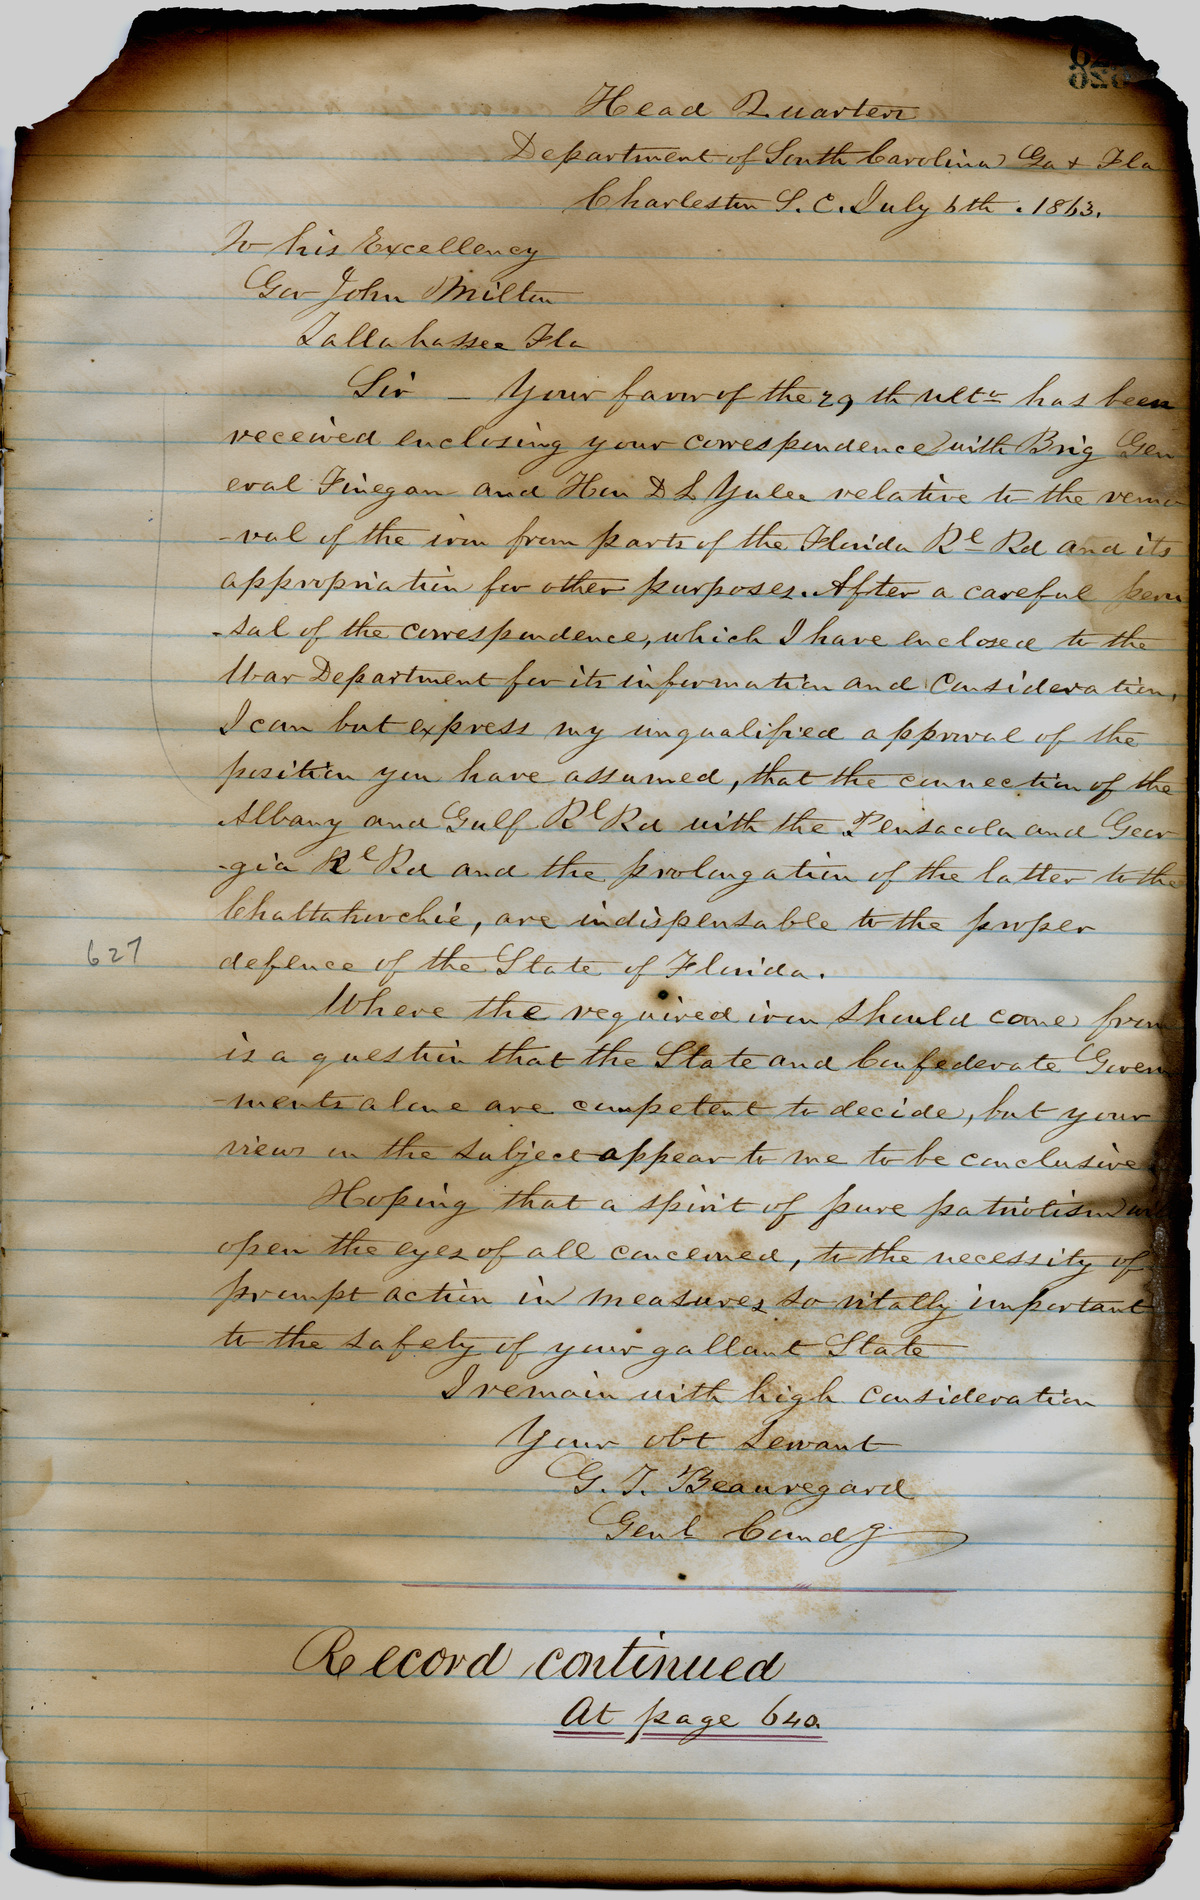 Head Quarters
Department of South Carolina Ga & Fla
Charleston S. C. July 6th. 1863.
To his Excellency
Gov John Milton
Tallahassee Fla
Sir — Your favor of the 29th ulto has been
received enclosing your correspondence with Brig Gen
eral Finegan and Hon D L Yulee relative to the remo
-val of the iron from parts of the Florida Rl Rd and its
appropriation for other purposes. After a careful peru
-sal of the correspondence, which I have enclosed to the
War Department for its information and consideration,
I can but express my unqualified approval of the
position you have assumed, that the connection of the
Albany and Gulf Rl Rd with the Pensacola and Geor
-gia Rl Rd and the prolongation of the latter to the
Chattahoochie, are indispensable to the proper
627
defence of the State of Florida.
Where the required iron should come from
is a question that the State and Confederate Govern
-ments alone are competent to decide, but your
views on the subject appear to me to be conclusive.
Hoping that a spirit of pure patriotism will
open the eyes of all concerned, to the necessity of
prompt action in measures so vitally important
to the safety of your gallant State
I remain with high consideration
Your obt Servant
G. T. Beauregard
Genl Comdg
Record continued
At page 640.